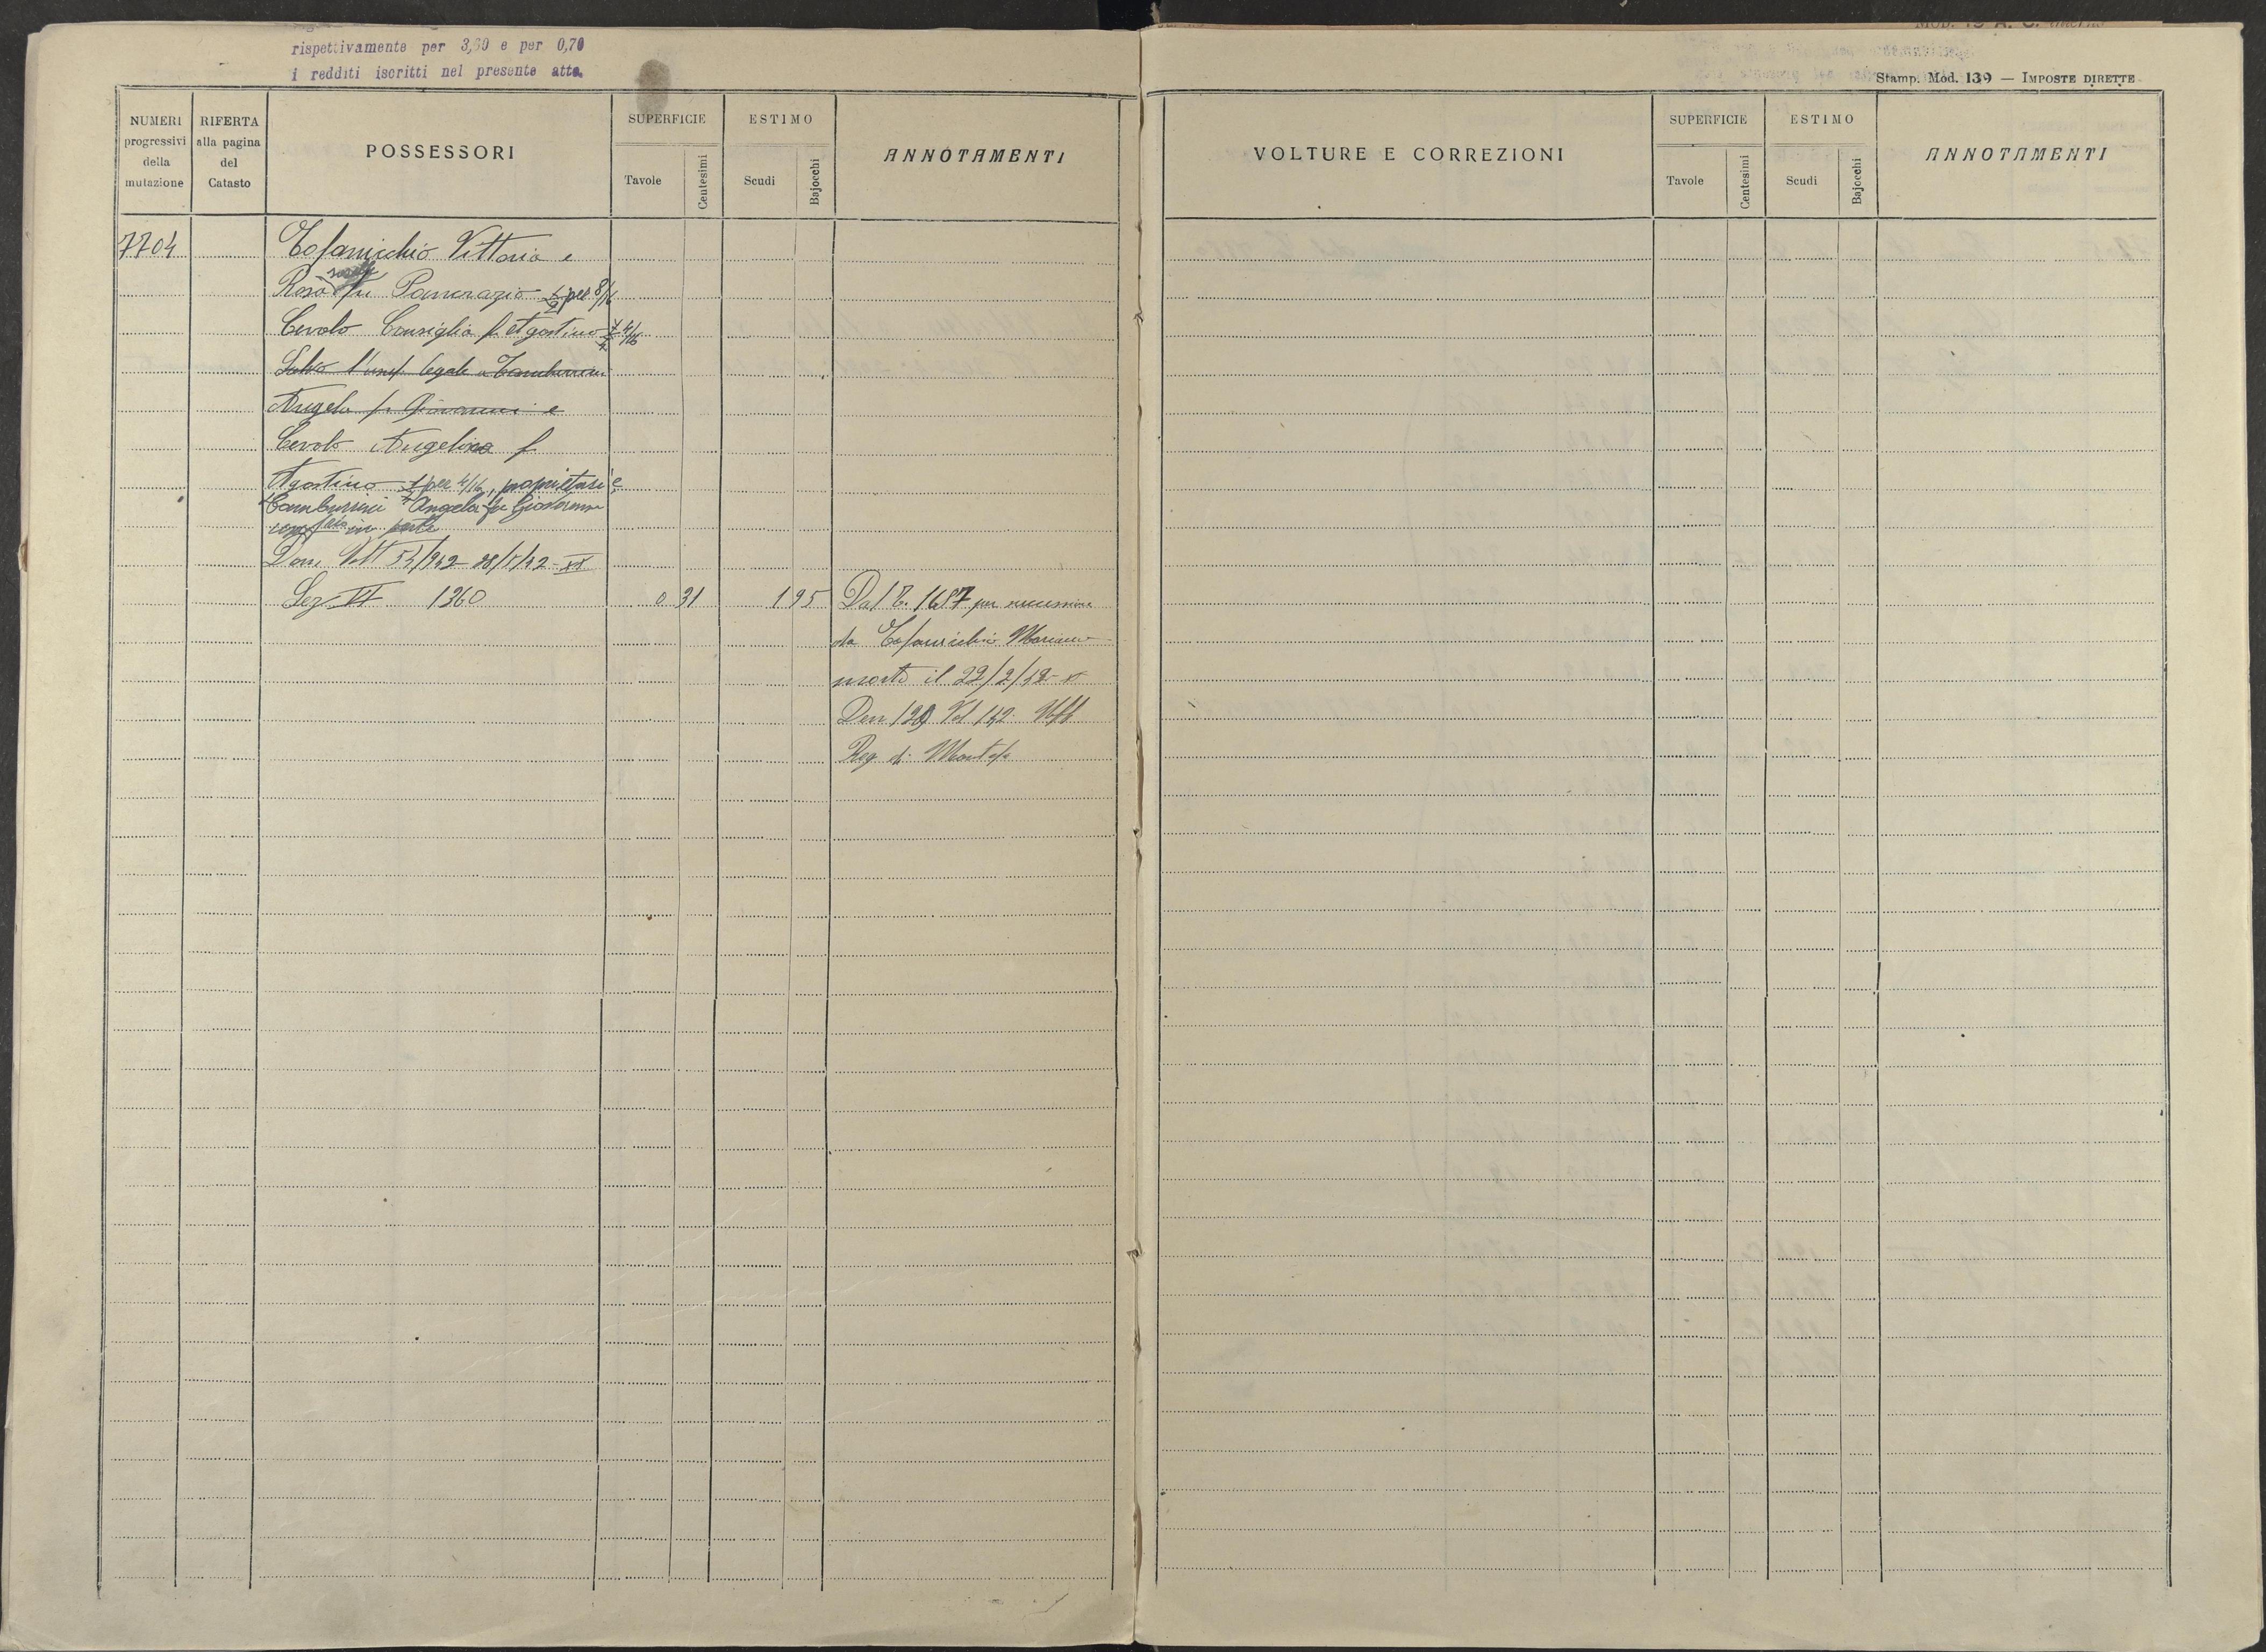 rispettivamente per 3,60 e per 0,70
i redditi iscritti nel presente atto.
NUMERI progressivi della mutazione
RIFERTA alla pagina del Catasto
POSSESSORI
SUPERFICIE
Tavole
Centesimi
ESTIMO
Scudi
Bajocchi
ANNOTAMENTI
7704
Cofanicchio Vittoria e
Rosa sorelle fu Pancrazio 1/2 per 8/16
Cevolo Consiglia f. Agostino 4/16
Salvo l'usuf. legale a Tamburrini
Angela f. Giovanni e
Cevolo Angelina f.
Agostino per 4/16, proprietari e
Tamburrini Angela fu Giovanni
in parte
Dom. Volt 54/942 28/5/42-XX
Sez VI 1360 0 31 1 95 Dal P. 1687 per successione
da Cofanicchio Mariano
morto il 22/2/42-
Den 129 Vol 142 Uff
Reg di
Stamp. Mod. 139 — IMPOSTE DIRETTE
VOLTURE E CORREZIONI
SUPERFICIE
Tavole
Centesimi
ESTIMO
Scudi
Bajocchi
ANNOTAMENTI